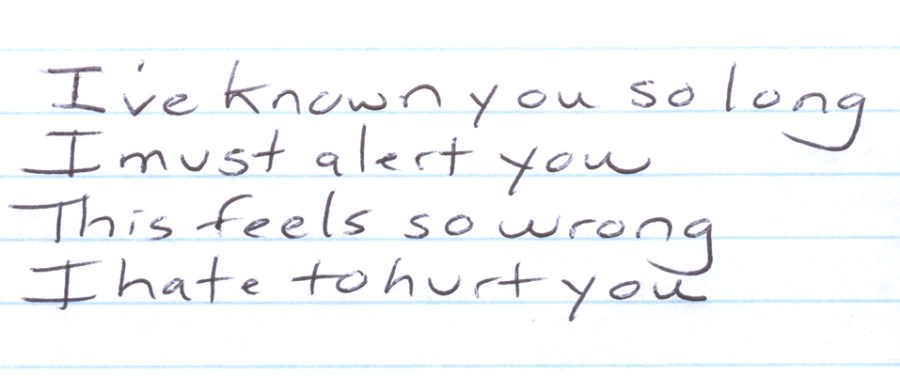 I've known you so long
I must alert you
This feels so wrong
I hate to hurt you